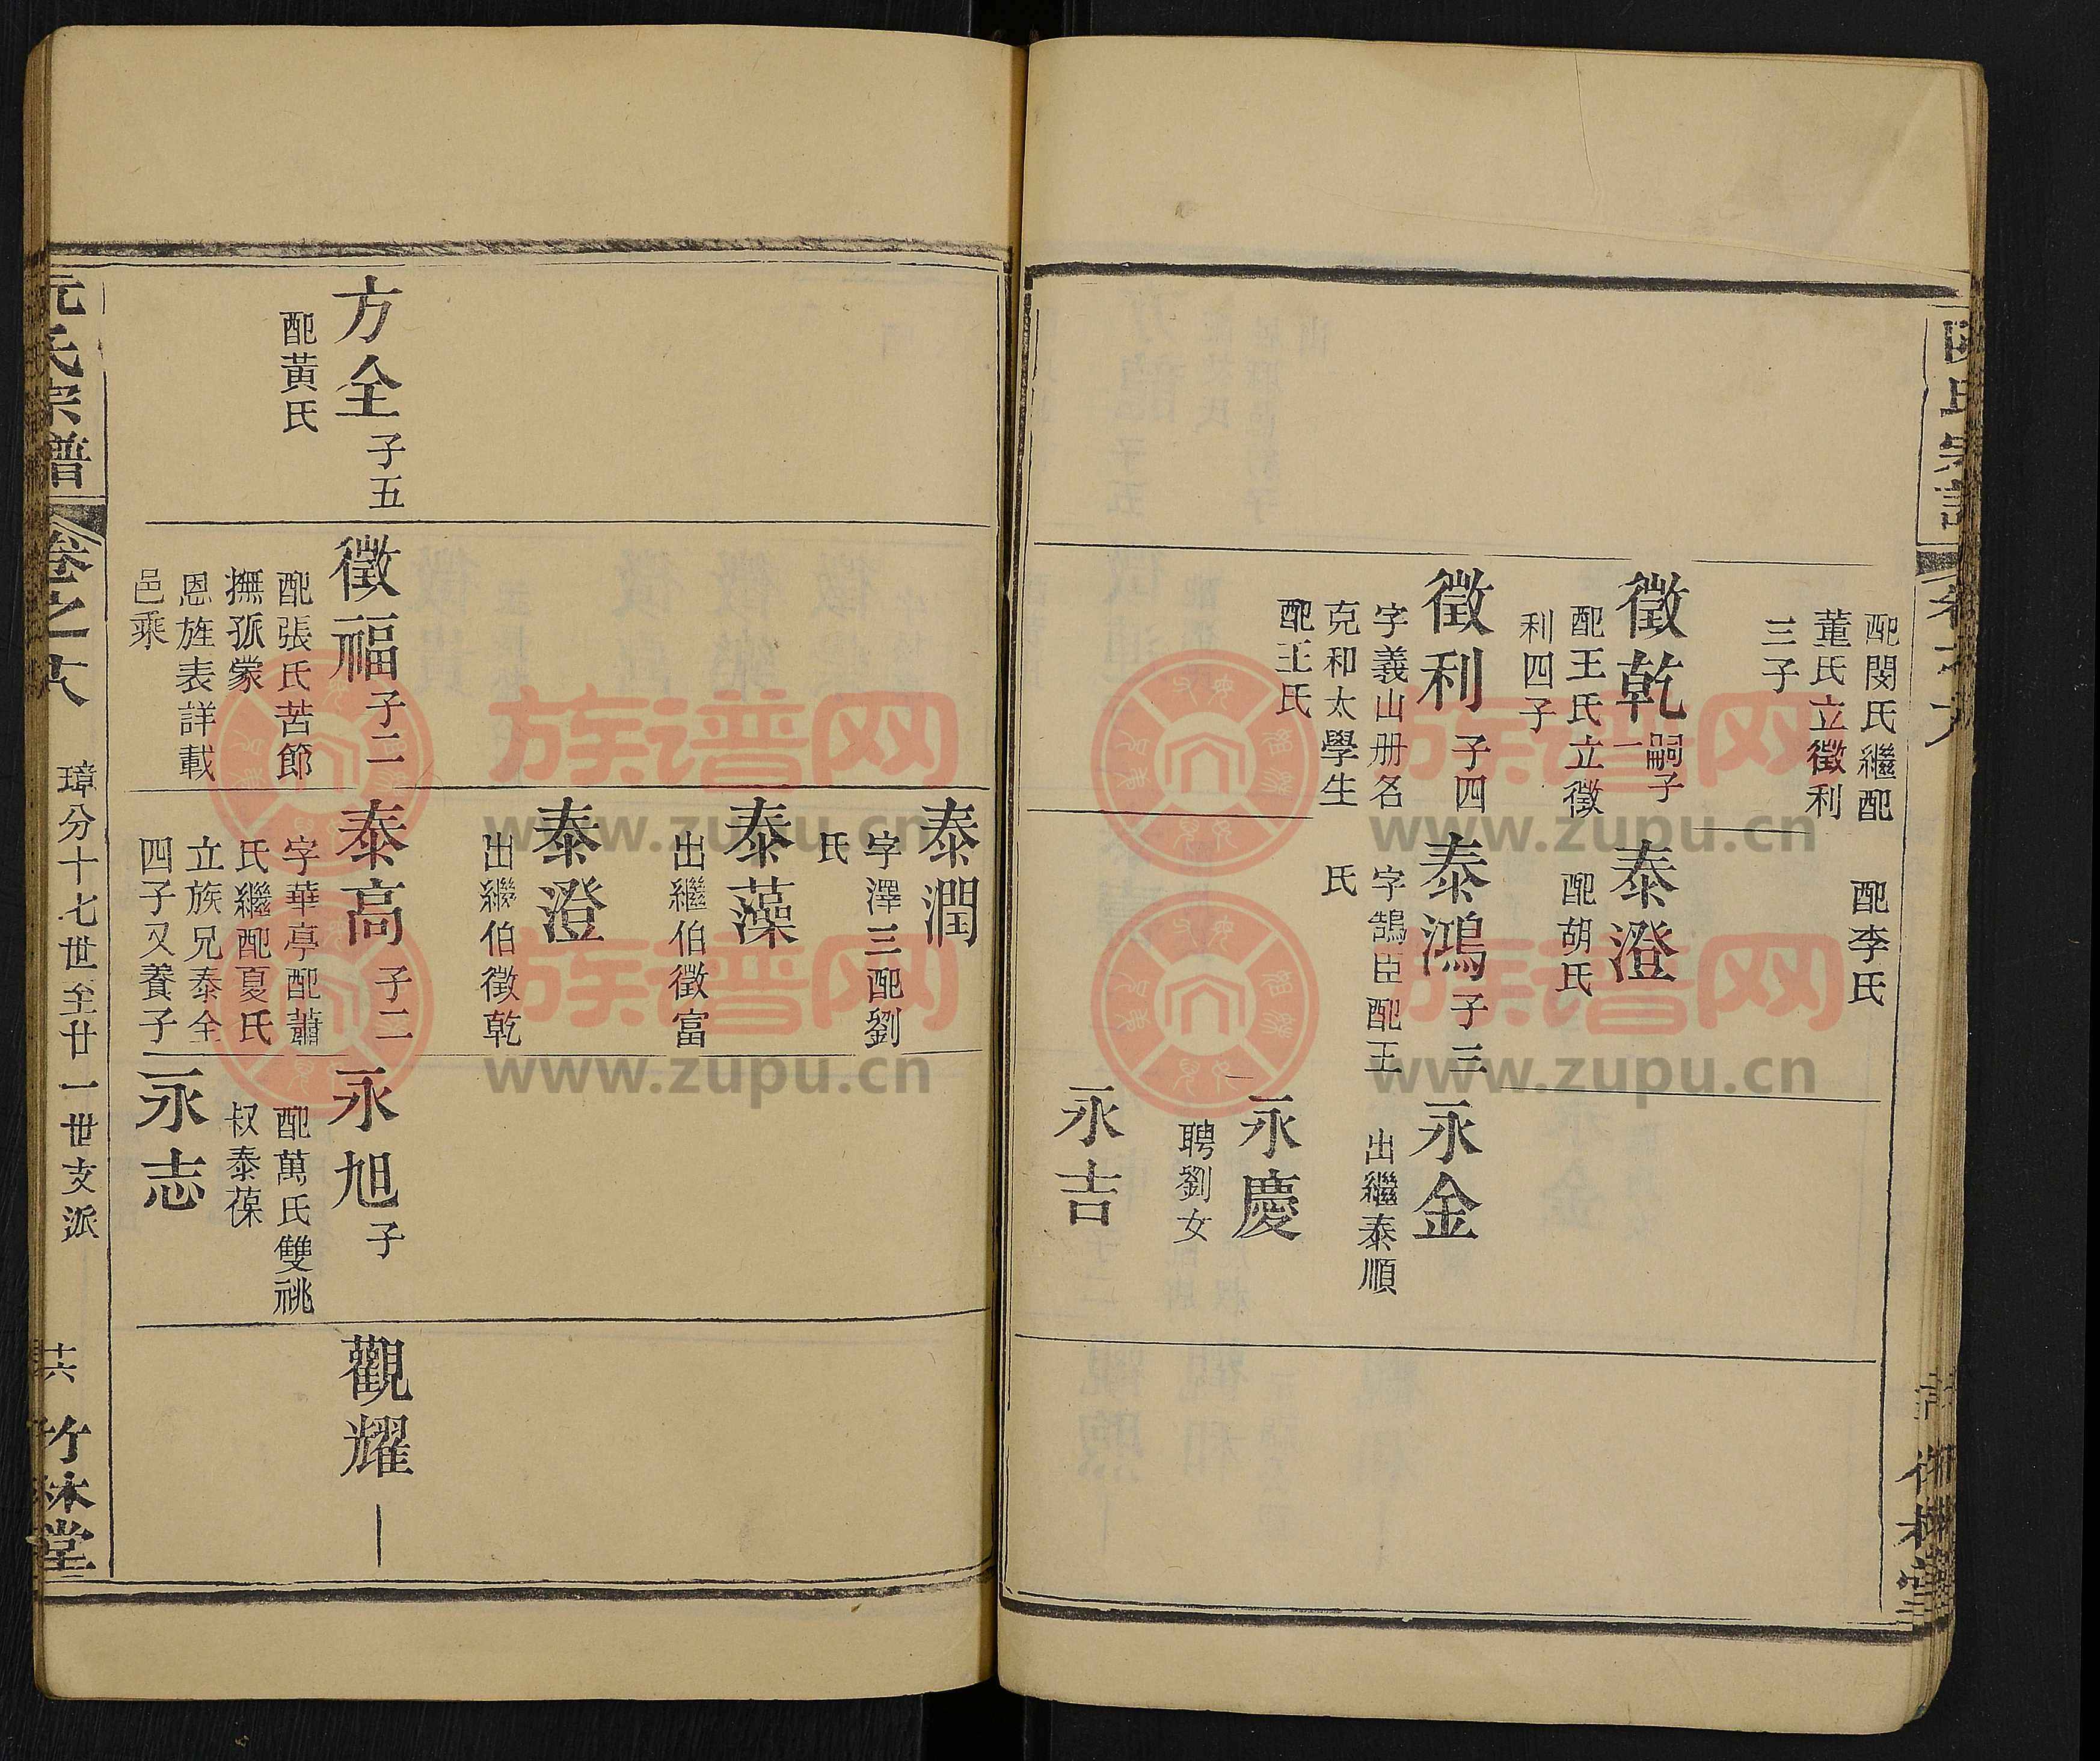 配閔氏繼配
董氏立徵利
三子
配李氏
徵乾
嗣子
一
配王氏立徵
利四子
泰澄
配胡氏
徵利
子四
字義山册名
克和太學生
配王氏
泰鴻
子三
字鵠臣配王
氏
永金
出繼泰順
永慶
聘劉女
永吉
泰潤
字澤三配劉
氏
泰藻
出繼伯徵富
泰澄
出繼伯徵乾
方全
子五
配黃氏
徵福
子二
配張氏苦節
撫孤蒙
恩旌表詳載
邑乘
泰高
子二
字華亭配蕭
氏繼配夏氏
立族兄泰全
四子又養子
一
永旭
子
配萬氏雙祧
叔泰葆
永志
觀耀
阮氏宗譜
卷之十八
璋分十七世至廿一世支派
竹林堂
族谱网
www.zupu.cn
族谱网
www.zupu.cn
族谱网
www.zupu.cn
族谱网
www.zupu.cn